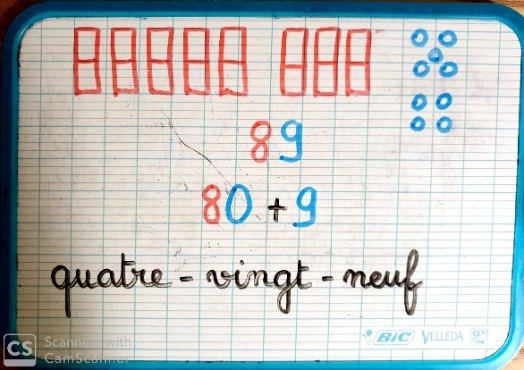 89
80 + 9
quatre - vingt - neuf
BIC VELLEDA
CS Scanned with
CamScanner